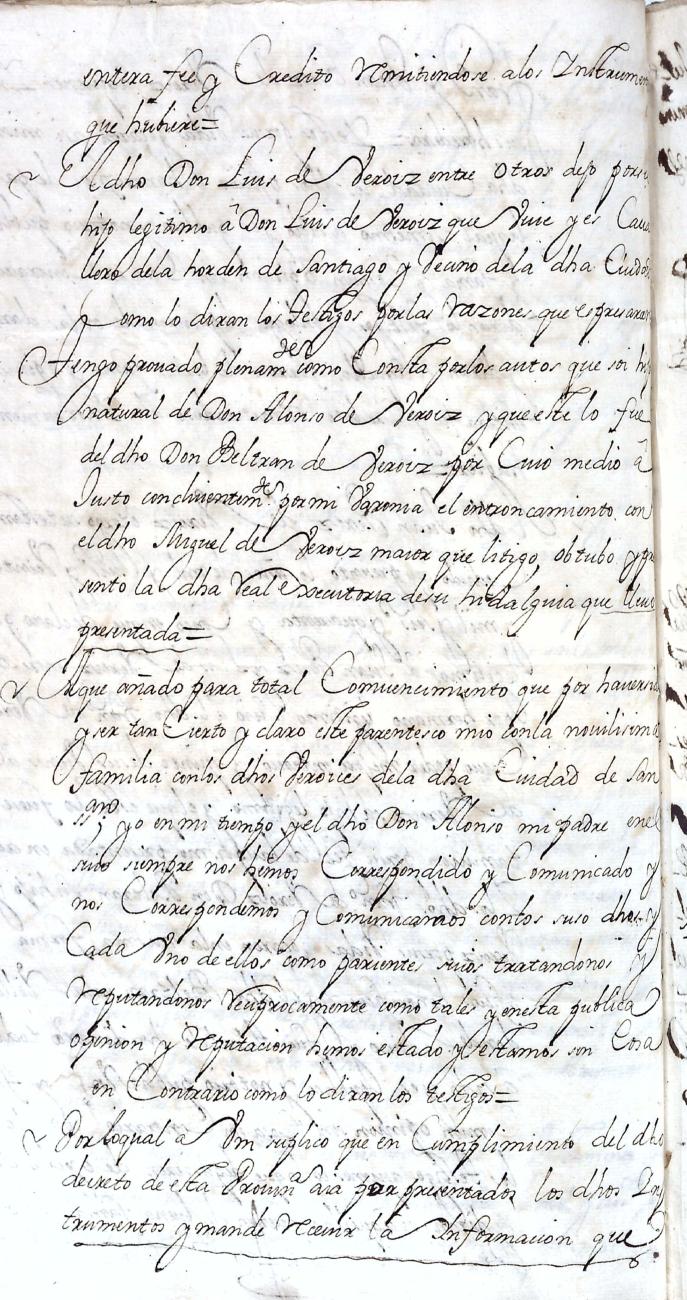 entera fee y Credito Remitiendose alos Instrumen
que hubiere=
El dho Don Luis de Veroiz entre otros dejo por su
hijo legitimo â Don Luis de Veroiz que Vive y es Cava
llero dela horden de Santiago y Vecino dela dha Ciudad
Como lo diran los testigos por las Razones que espresaran
Tengo provado plenamte como Consta por los autos que soi hijo
natural de Don Alonso de Veroiz y que este lo fue
del dho Don Beltran de Veroiz por Cuio medio â
Justo concluientemte por mi Varonia el entroncamiento con
el dho Miguel de Veroiz maior que litigo, obtubo y pre
sento la dha Real executoria de su hidalguia que llevo
presentada=
que añado para total Comvencimiento que por haver sido
y ser tan Cierto y claro este parentesco mio conla novilisima
familia conlos dhos Veroices dela dha Ciudad de San
yo en mi tiempo y el dho Don Alonso mi padre enel
suio siempre nos hemos Correspondido y Comunicado y
nos Correspondemos y Comunicamos conlos suso dhos y
Cada Uno de ellos como parientes suios tratandonos y
Reputandonos Reciprocamente como tales y enesta publica
opinion y Reputacion hemos estado y estamos sin Cosa
en Contrario como lo diran los testigos=
Por loqual a Vm suplico que en Cumplimiento del dho
decreto de esta Provina aia por presentados los dhos Ins
trumentos y mande Recivir la Informacion que